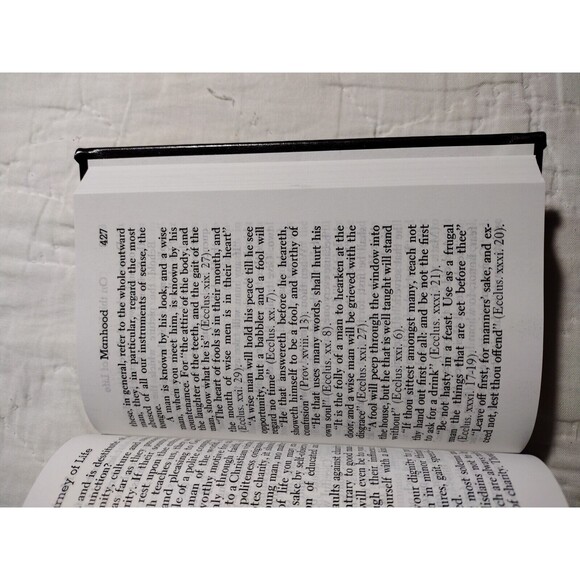 urney of Life
and is destitute
unction?
culture
as far as they
If their
teaches the
and pleasing
of a polite
man of the
motive
only through
to a Christian
politeness
charity, it
man, no
of life you may
sake by self
of educated a
against
to good
will even be
through their
with a
your dignity to
in minor
gait,
most solem
of charity
Manhood 427
these, in general, refer to the whole outward
man, they, in particular, regard the most
abused of all our instruments of sense, the
tongue.
A man is known by his look, and a wise
man, when you meet him, is known by his
countenance. For "the attire of the body, and
the laughter of the teeth, and the gait of the
man, show what he is" (Ecclus. xix. 27).
"The heart of fools is in their mouth, and
the mouth of wise men is in their heart"
(Ecclus. xxi. 29).
"A wise man will hold his peace till he see
opportunity, but a babbler and a fool will
regard no time" (Ecclus. xx. 7).
"He that answereth before he heareth,
showeth himself to be a fool, and worthy of
confusion" (Prov. xviii. 13).
"He that uses many words, shall hurt his
own soul" (Ecclus. xx. 8).
"It is the folly of a man to hearken at the
door: and a wise man will be grieved with the
disgrace" (Ecclus. xxi. 27).
"A fool will peep through the window into
the house, but he that is well taught will stand
without" (Ecclus. xxi. 6).
"If thou sittest amongst many, reach not
thy hand out first of all: and be not the first
to ask for a drink" (Ecclus. xxxi. 21).
"Be not hasty in a feast. Use as a frugal
man the things that are set before thee"
(Ecclus. xxxi. 17-19).
"Leave off first, for manners' sake, and ex-
ceed not, lest thou offend" (Ecclus. xxxi. 20).